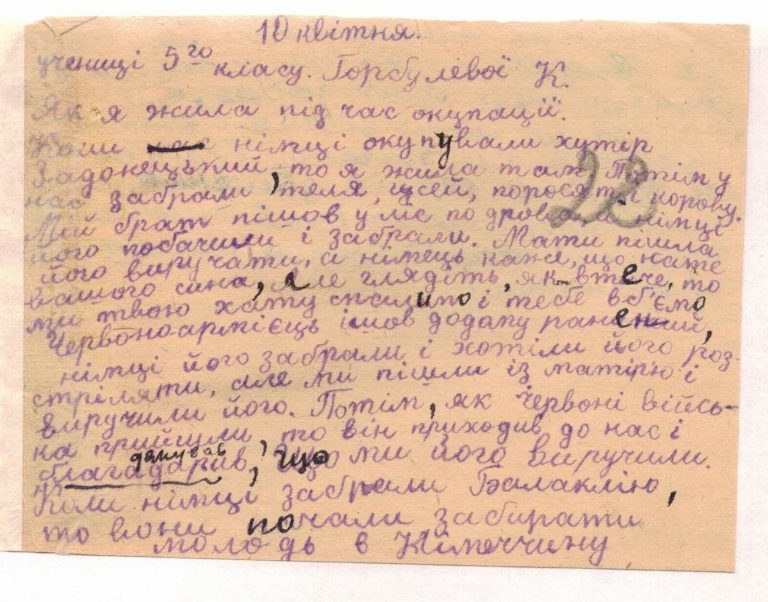 10 квітня.
учениці 5го класу. Горбулевої К.
Як я жила під час окупації.
Коли німці окупували хутір
Задонецький, то я жила там. Потім у
нас забрали, теля, гусей, порося та корову.
28
Мій брат пішов у ліс по дрова, а німці
його побачили і забрали. Мати пішла
його виручати, а німець каже, що нате
вашого сина, але глядіть, як втече, то
ми твою хату спалимо і тебе вб'ємо
Червоноармієць ішов додому ранений,
німці його забрали і хотіли його роз-
стріляти, але ми пішли із матірю і
виручили його. Потім, як червоні війсь-
ка прийшли, то він приходив до нас і
дякував
благадарив, що ми його виручили.
Коли німці забрали Балаклію,
то вони почали забирати
молодь в Німеччину